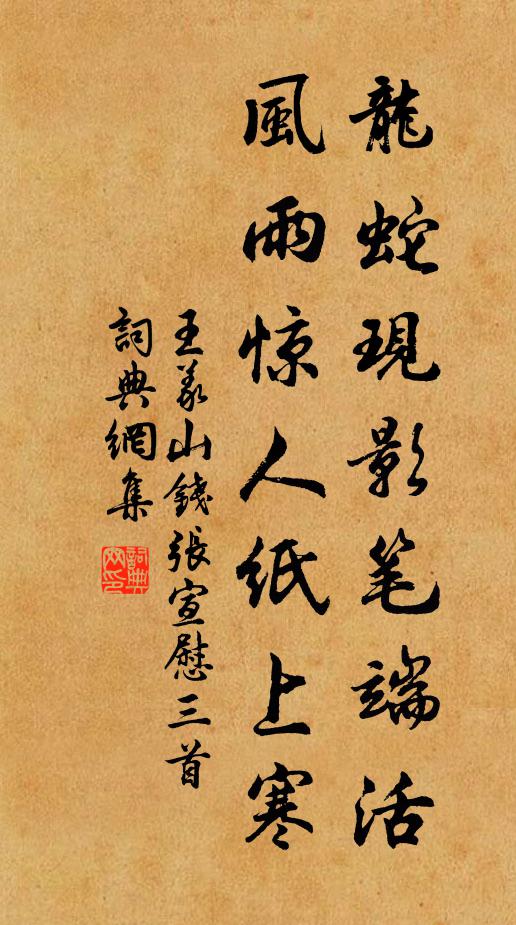 龍蛇現影笔端活
風雨惊人紙上寒
王義山錢張宣慰三首
詞典網集
詞典网印